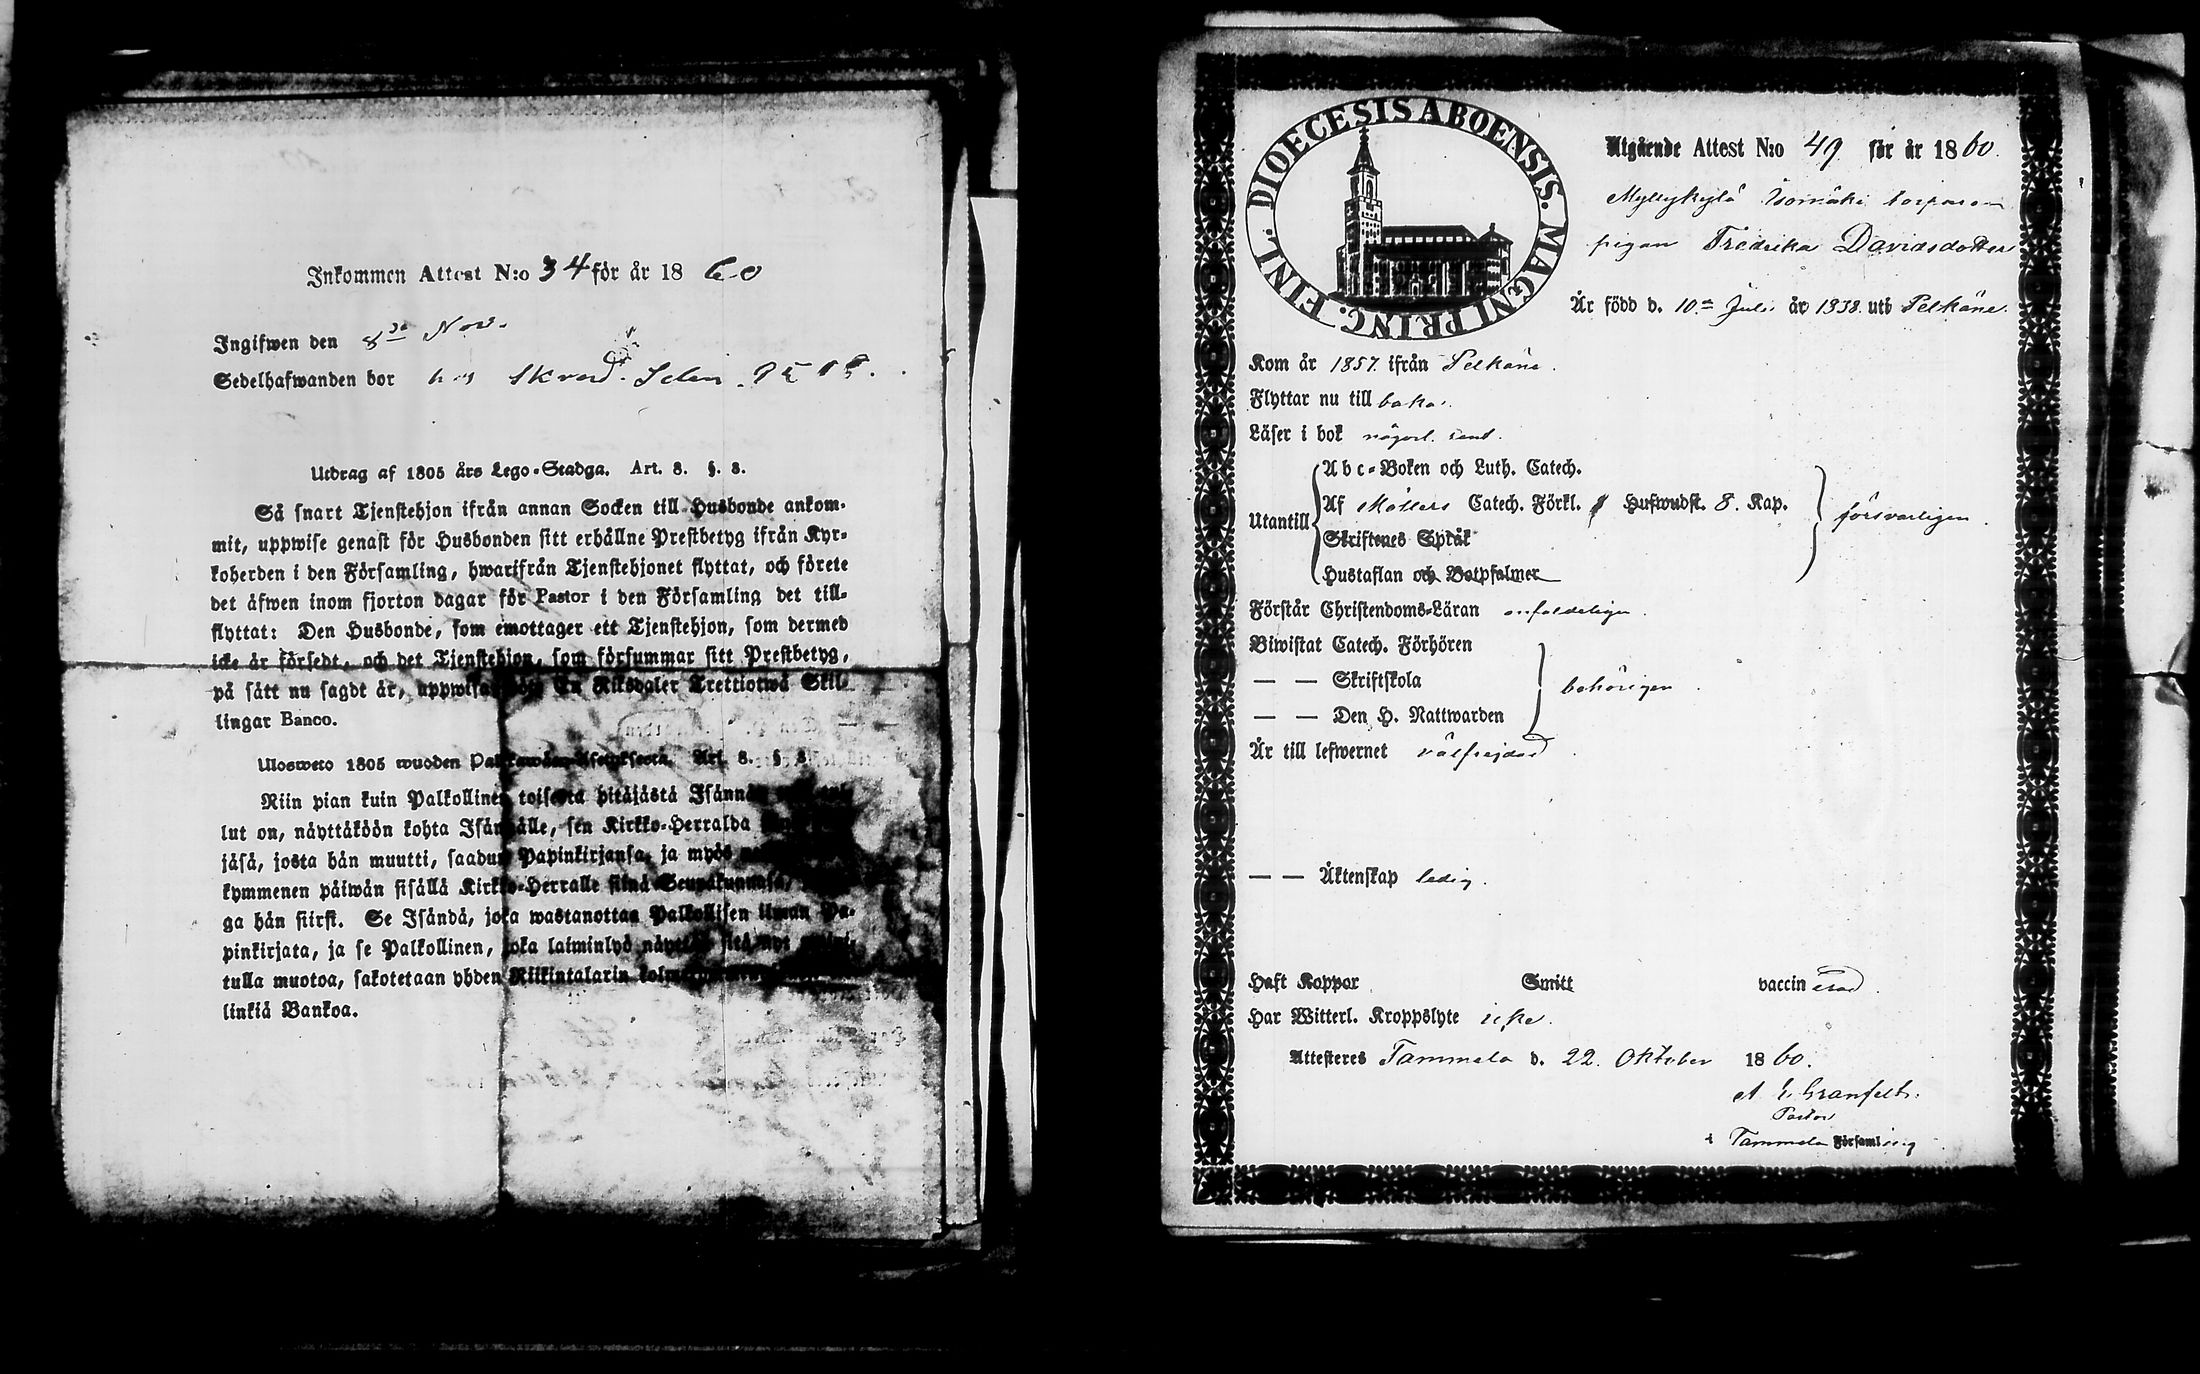 Inkommen Attest N:o 34 för år 1860
Ingifwen den 8de Nov.
Sedelhafwanden bor hos Skrædd. Selin
Utdrag af 1805 års Lego-Stadga. Art. 8. §. 8.
Så snart Tjenstehjon ifrån annan Socken till Husbonde ankom-
mit, uppwise genast för Husbonden sitt erhållne Prestbetyg ifrån Kyr-
koherden i den Församling, hwarifrån Tjenstehjonet flyttat, och förete
det äfwen inom fjorton dagar för Pastor i den Församling det till-
flyttat: Den Husbonde, som emottager ett Tjenstehjon, som dermed
icke är försedt, och det Tjenstehjon, som försummar sitt Prestbetyg,
på sätt nu sagdt är, uppwisa, En Riksdaler Trettiotwå Skil-
lingar Banco.
Ulosweto 1805 wuoden Palkawäen-Asetuksesta. Art. 8. §. 8.
Niin pian kuin Palkollinen toisesta pitäjästä Isännän
lut on, näyttäköön kohta Isännälle, sen Kirkko-Herralda
jäsä, josta hän muutti, saadun Papinkirjansa, ja myös
kymmenen päiwän sisällä Kirkko-Herralle siinä Seurakunnasa,
ga hän siirsi. Se Isändä, joka wastanottaa Palkollisen ilman Pa-
pinkirjata, ja se Palkollinen, joka laiminlyö näyttää sitä nyt
tulla muotoa, sakotetaan yhden Riikintalarin
linkiä Bankoa.
DIOECESIS ABOENSIS. MAGNI PRINC. FINL.
Utgående Attest N:o 49 för år 1860.
Myllykylä Isomäki torpare
pigan Fredrika Davidsdotter
Är född d. 10de Juli år 1838 uti Pelkäne.
Kom år 1857 ifrån Pelkäne.
Flyttar nu till baka.
Läser i bok någorl. rent.
Abc-Boken och Luth. Catech.
Utantill Af Möllers Catech. Förkl. Hufwudst. 8. Kap. försvarligen.
Skriftenes Språk
Hustaflan och Botpsalmer
Förstår Christendoms-Läran enfaldeligen.
Biwistat Catech. Förhören
— — Skriftskola behörigen.
— — Den H. Nattwarden
Är till lefwernet välfrejdad
— — Äktenskap ledig.
Haft Koppor Smitt vaccinerad.
Har Witterl. Kroppslyte icke.
Attesteres Tammela d. 22. Oktober 1860.
A. E. Granfelt.
Pastor
i Tammela Församling